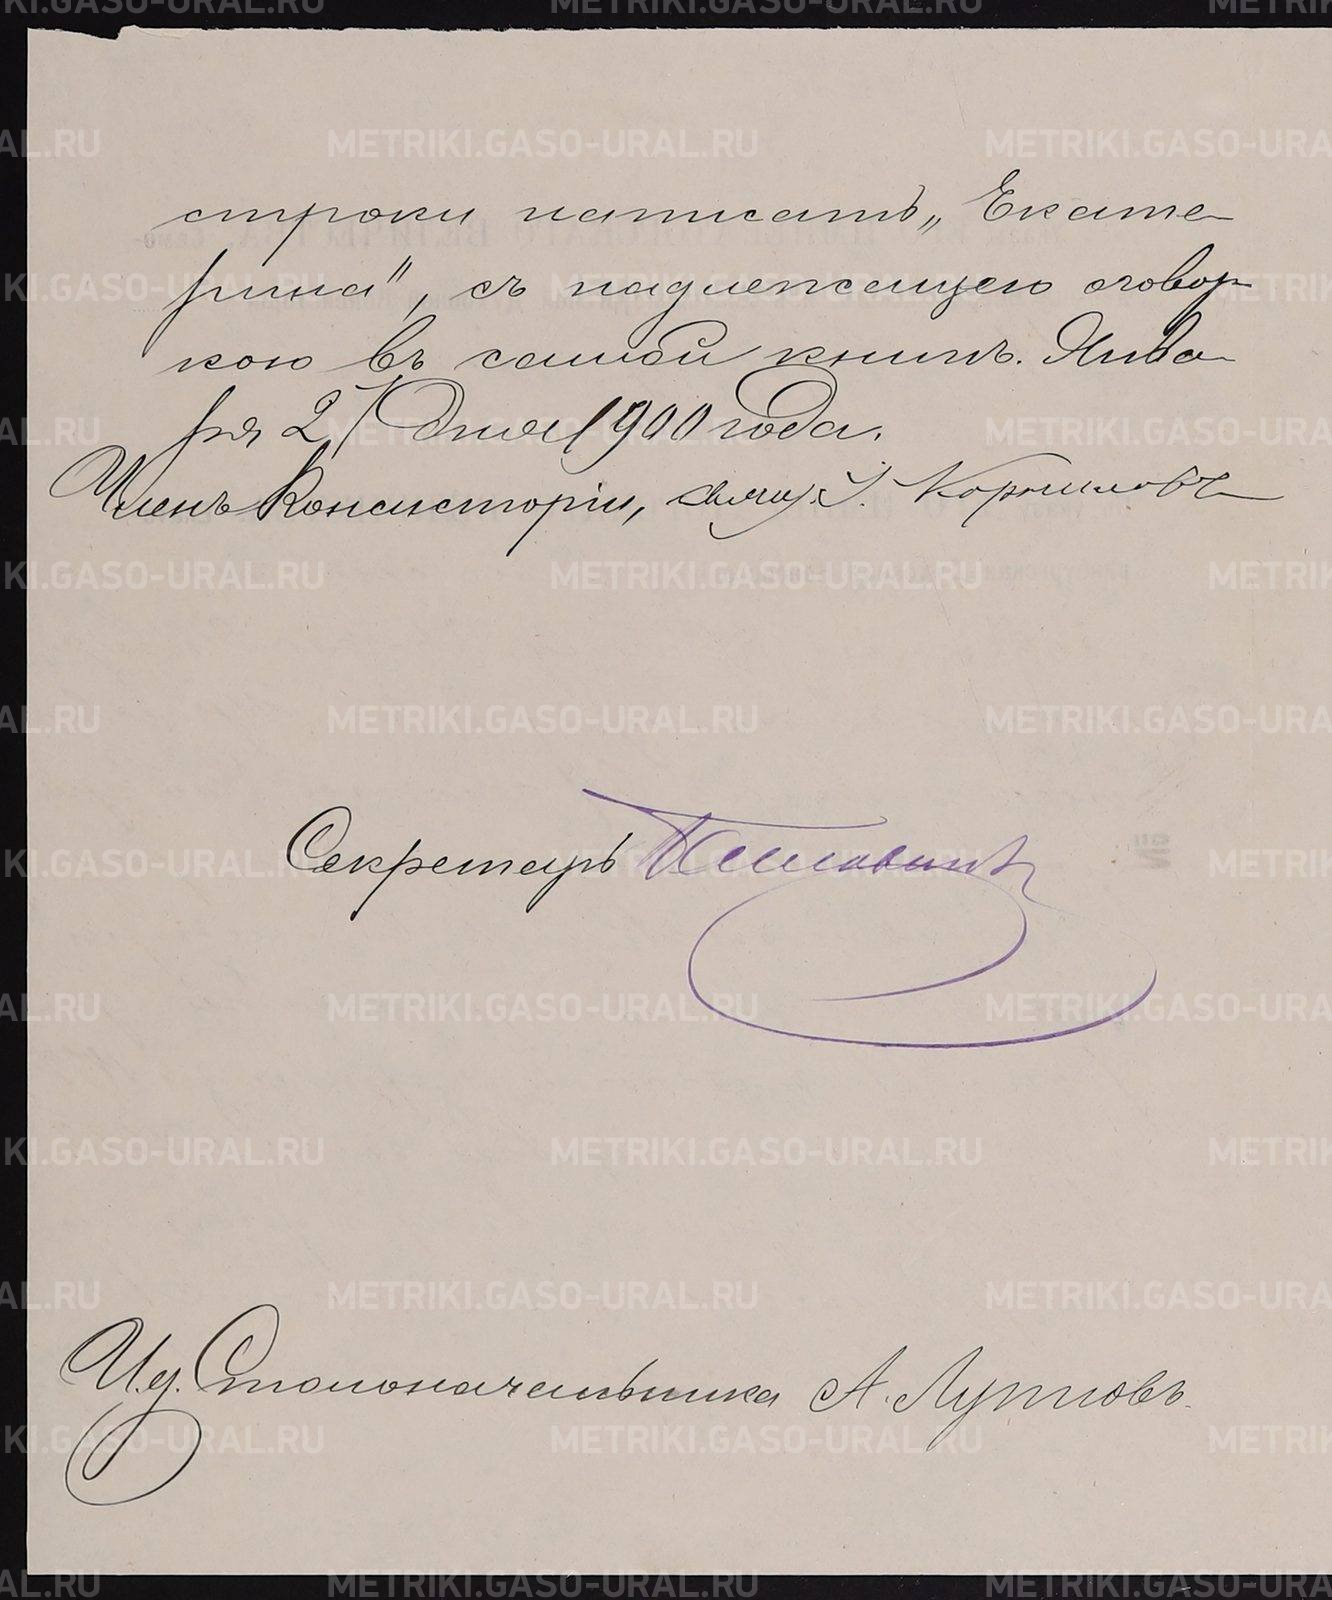 строки написать „Екате-
рина", съ надлежащею оговор-
кою въ самой книгѣ. Янва-
ря 27 дня 1900 года.
Членъ Консисторіи, свящ. І. Корниловъ
Секретарь
И.д. Столоначальника А. Лупповъ.
METRIKI.GASO-URAL.RU